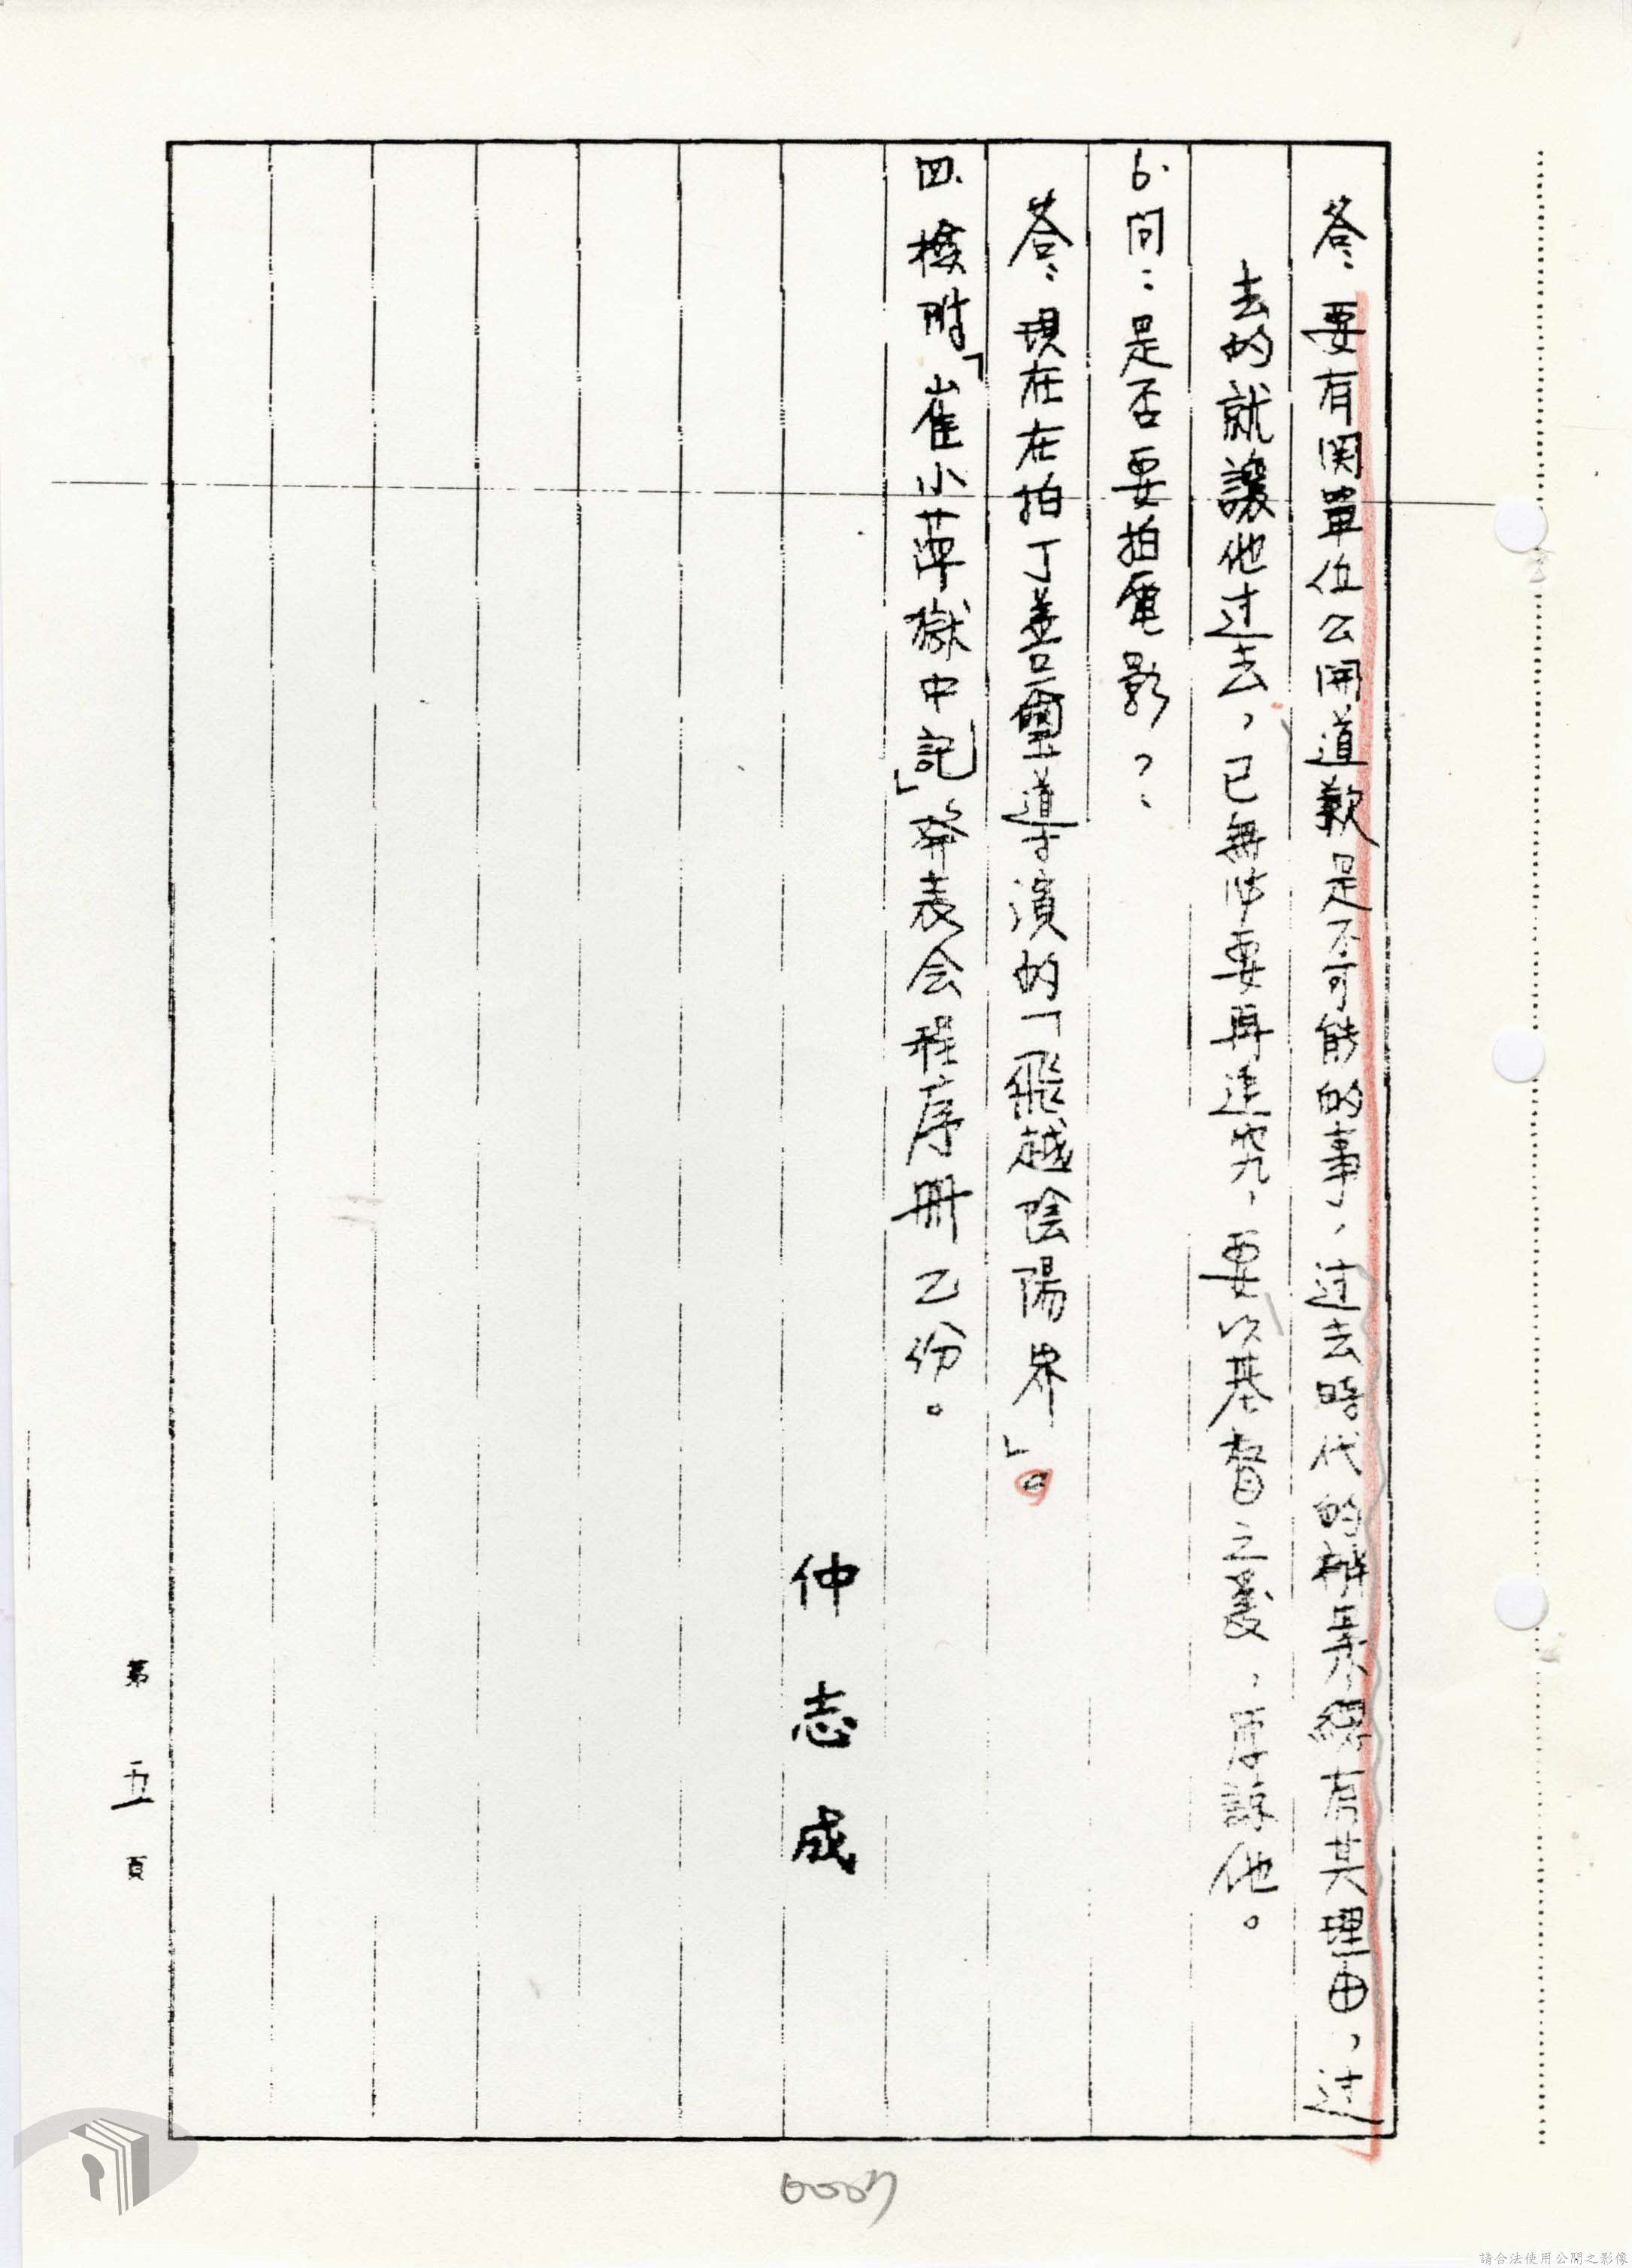 答：要有関單位公開道歉是不可能的事，过去時代的辦案總有其理由，过
去的就讓他过去，已無必要再追究，要以基督之愛，原諒他。
6.問：是否要拍電影？
答：現在在拍丁善璽導演的「飛越陰陽界」。
四、檢附「崔小萍獄中記」発表会程序冊乙份。
仲志成
第五頁
0007
請合法使用公開之影像